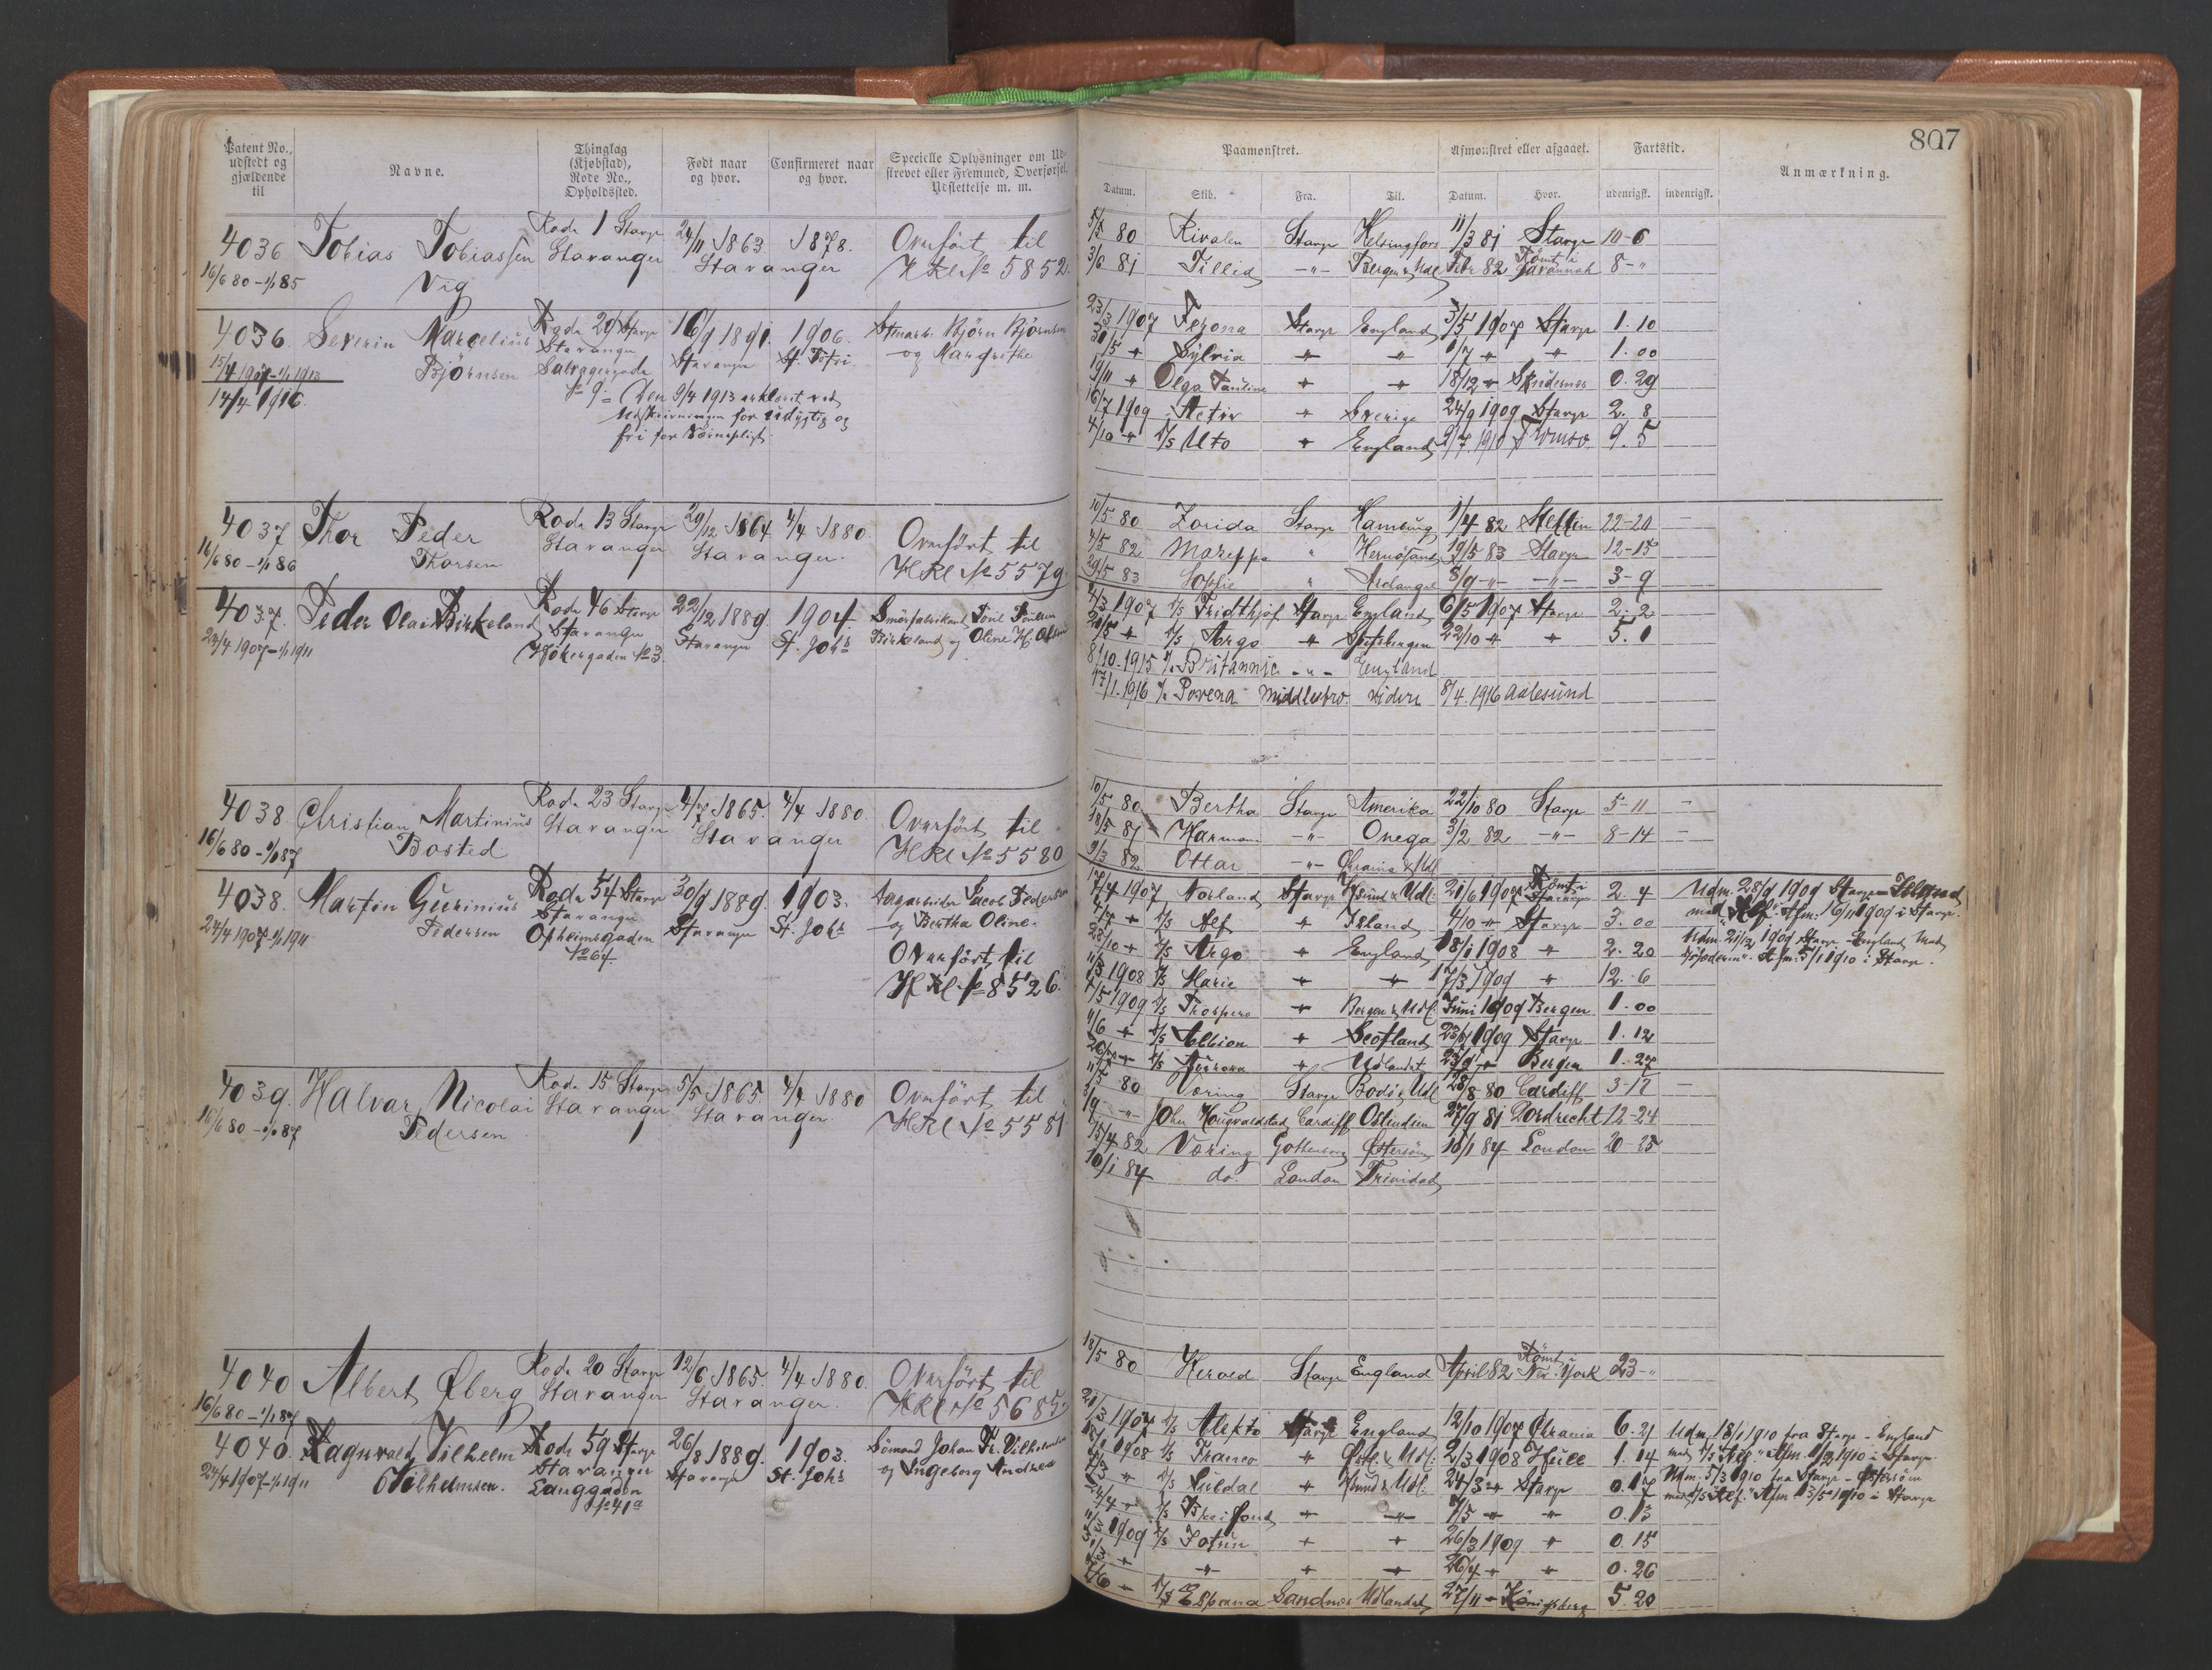 Patent No., udstedt og gjældende til
Navne.
Thinglag (Kjøbstad), Rode No., Opholdssted.
Født naar og hvor.
Confirmeret naar og hvor.
Specielle Oplysninger om Udstrevet eller Fremmed, Overførsel, Udslettelse m. m.
Paamønstret.
Afmønstret eller afgaaet.
Fartstid.
Anmærkning.
807
Datum. Skib. Fra. Til. Datum. Hvor. udenrigsk. indenrigsk.
4036 Tobias Tobiassen Rode 1 Stavgr 24/11 1863. 1878. Overført til
16/6 80 - 1/1 85 Vig Stavanger Stavanger HRl No 5852.
5/5 80 Rivalen Stavgr Helsingfors 11/3 81 Stavgr 10-6
3/6 81 Tillid -"- Bergen & Udl Febr 82 Römt i Savannah 8-"
4036. Severin Marcelius Rode 29 Stavgr 16/9 1891. 1906. Bjørn Bjørnsen
15/4 1907 - 1/1 1913 Bjørnsen Stavanger Stavanger St. Petri og Margrethe
14/4 1916. No 9. Den 9/4 1913 erklæret ved
Udskrivningen for udygtig og
fri for Værnepligt.
23/3 1907 Fezona Stavgr England 3/5 1907 Stavgr 1. 10
31/5 " Sylvia " " 1/7 " " 1. 00
19/11 " Olga Pauline " " 18/12 " Skudenes 0. 29
16/7 1909 Activ " Sverige 24/9 1909 Stavgr 2. 8
4/10 " D/S Uto " England 9/7 1910 Tromsø. 9. 5
4037 Thor Peder Rode 13 Stavgr 29/12 1864. 4/4 1880. Overført til
16/6 80 - 1/1 86 Thorsen Stavanger Stavanger. HRl No 5579.
10/5 80 Zorida Stavgr Hamburg 1/4 82 Stettin 22-20
4/5 82 Mareppa " Hernösand 19/5 83 Stavgr 12-15
29/5 83 Sophie " Archangel 8/9 -"- -"- 3-9
4037. Peder Olai Birkeland Rode 46 Stavgr 22/12 1889. 1904.
24/4 1907 - 1/1 1911 Stavanger Stavanger St. Johs Birkeland og Oline H. Olsen
Høkergaden No 3.
4/3 1907 D/S Fridthjof Stavgr England 6/5 1907 Stavgr 2. 2
20/5 " D/S Argo " Spitsbergen 22/10 " " 5. 1
8/10 - 1915 D/s Britannic - " - England
17/1. 1916 D/s Povena Middlesbro. videre 8/4. 1916 Aalesund
4038. Christian Martinius Rode 23 Stavgr 4/7 1865. 4/4 1880. Overført til
16/6 80 - 1/1 87 Bosted Stavanger Stavanger HRl No 5580
10/5 80 Bertha Stavgr Amerika 22/10 80 Stavgr 5-11
18/5 81 Harmoni -"- Onega 3/2 82 -"- 8-14
9/3 82 Ottar -"- Chrania & Udl
4038. Martin Gurinius Rode 54 Stavgr 30/9 1889. 1903. Sagarbeider Jacob Pedersen
24/4 1907 - 1/1 1911 Pedersen Stavanger Stavanger St. Johs og Bertha Oline.
Opheimsgaden No 64. Overført til
HRl No 8526.
17/4 1907 Norland Stavgr Hsund & Udl. 21/6 1907 Römt i Stavanger 2. 4 Udm. 28/9 1909 Stavgr - Island
4/7 " D/S Alf " Island 4/10 " Stavgr 3. 00 med "Alf". Afm. 16/11 1909 i Stavgr.
28/10 " D/S Argo " England 18/1 1908 " 2. 20 Udm. 21/12 1909 Stavgr - England med
1908 D/S Marie " " 17/3 1909 " 12. 6 Afm. 5/1 1910 i Stavgr.
1/5 1909 D/S Prospero " Bergen & Udl. Juni 1909 Bergen 1. 00
11/6 " D/S Albion " Scotland 23/7 1909 Stavgr 1. 12
" Udlandet " Bergen 1. 27
4039. Halvar Nicolai Rode 15 Stavgr 5/5 1865. 4/4 1880 Overført til
16/6 80 - 1/1 87 Pedersen Stavanger Stavanger HRl No 5581
11/5 80 Væring Stavgr Bodö & Udl 28/8 80 Cardiff 3-17
1/9 -"- John Haugvaldstad Cardiff Ostindien 27/9 81 Dordrecht 12-24
15/4 82 Væring Gottenborg Østersöen 10/1 84 London 20-25
10/1 84 do. London Trinidad
4040 Albert Øberg Rode 20 Stavgr 12/6 1865. 4/4 1880. Overført til
16/6 80 - 1/1 87 Stavanger Stavanger. HRl No 5685.
18/5 80 Herold Stavgr England April 82 Römt i New York 23-"
4040. Ragnvald Vilhelm Rode 59 Stavgr 26/8 1889. 1903. Sömand Johan Fr. Vilhelmsen
24/4 1907 - 1/1 1911 Vilhelmsen. Stavanger Stavanger St. Johs og Ingeborg Andrea
Langgaden No 41a
21/3 1907 D/S Alekto Stavgr England 12/10 1907 Chrania 6. 21 Udm. 18/1 1910 fra Stavgr - England
1908 D/S Franco " Østl. & Udl. 2/3 1908 Hull 1. 14 Afm. 1910 i Stavgr.
" D/S Suldal " Hsund & Udl. 24/3 " Stavgr 0. 17 Udm. 5/3 1910 fra Stavgr - Østersöen
24/4 " D/S " " 7/5 " " 0. 13 med D/S "Alf." Afm. 13/5 1910 i Stavgr
11/3 1909 D/S Jotun " " 26/3 1909 " 0. 15
31/3 " " " " 26/4 " " 0. 26
7/6 " D/S Esperana Sandnes Udlandet 27/11 " Königsberg 5. 20